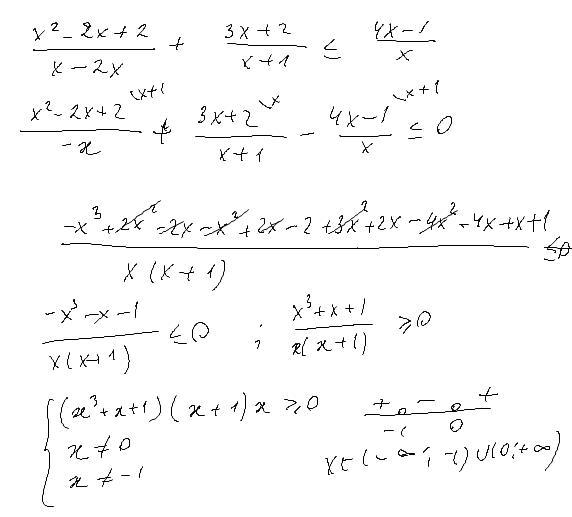 (x² - 2x + 2)/(x - 2x) + (3x + 2)/(x + 1) ≤ (4x - 1)/x
(x² - 2x + 2)/(-x) \x+1 + (3x + 2)/(x + 1) \x - (4x - 1)/x \x+1 ≤ 0
(-x³ + 2x² - 2x - x² + 2x - 2 + 3x² + 2x - 4x² - 4x + x + 1)/(x(x + 1)) ≤ 0
(-x³ - x - 1)/(x(x + 1)) ≤ 0 ; (x³ + x + 1)/(x(x + 1)) ≥ 0
{ (x³ + x + 1)(x + 1)x ≥ 0 + o - o +
x ≠ 0 -1 0
x ≠ -1 x ∈ (-∞; -1) ∪ (0; +∞)